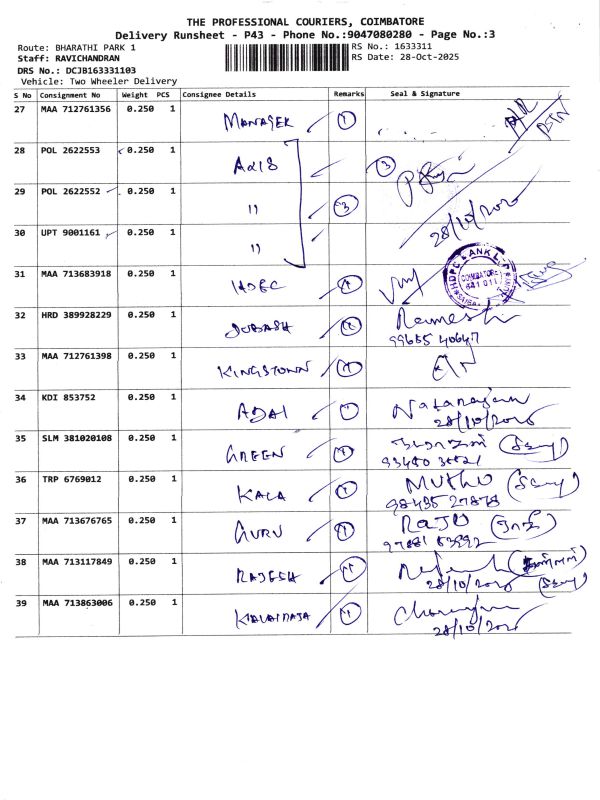 THE PROFESSIONAL COURIERS, COIMBATORE
Delivery Runsheet - P43 - Phone No.:9047080280 - Page No.:3
Route: BHARATHI PARK 1 RS No.: 1633311
Staff: RAVICHANDRAN RS Date: 28-Oct-2025
DRS No.: DCJB163331103
Vehicle: Two Wheeler Delivery
S No Consignment No Weight PCS Consignee Details Remarks Seal & Signature
27 MAA 712761356 0.250 1 MANAGER 1
28 POL 2622553 0.250 1 Axis 3
29 POL 2622552 0.250 1 " 3
28/10/2025
30 UPT 9001161 0.250 1 "
31 MAA 713683918 0.250 1 HDFC 1 HDFC BANK LTD COIMBATORE 641 011
32 HRD 389928229 0.250 1 SUBASH 1 Ramesh
99655 40647
33 MAA 712761398 0.250 1 KINGSTOWN 1
34 KDI 853752 0.250 1 ADAI 1 Natarajan
28/10/2025
35 SLM 381020108 0.250 1 GREEN 1
36 TRP 6769012 0.250 1 KALA 1 MUTHU
98435 27878
37 MAA 713676765 0.250 1 GURU 1 RAJU
38 MAA 713117849 0.250 1 RAJESH 1
28/10/2025
39 MAA 713863006 0.250 1 KALAIRAJA 1
28/10/2025